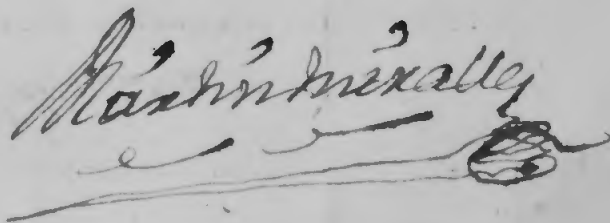 Martin Miralles